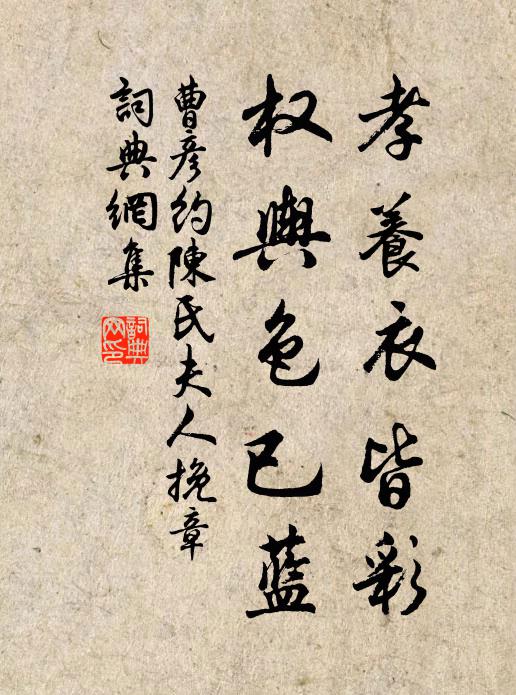 孝養衣皆彩
权輿色已藍
曹彦約陳氏夫人挽章
詞典網集
詞典网印